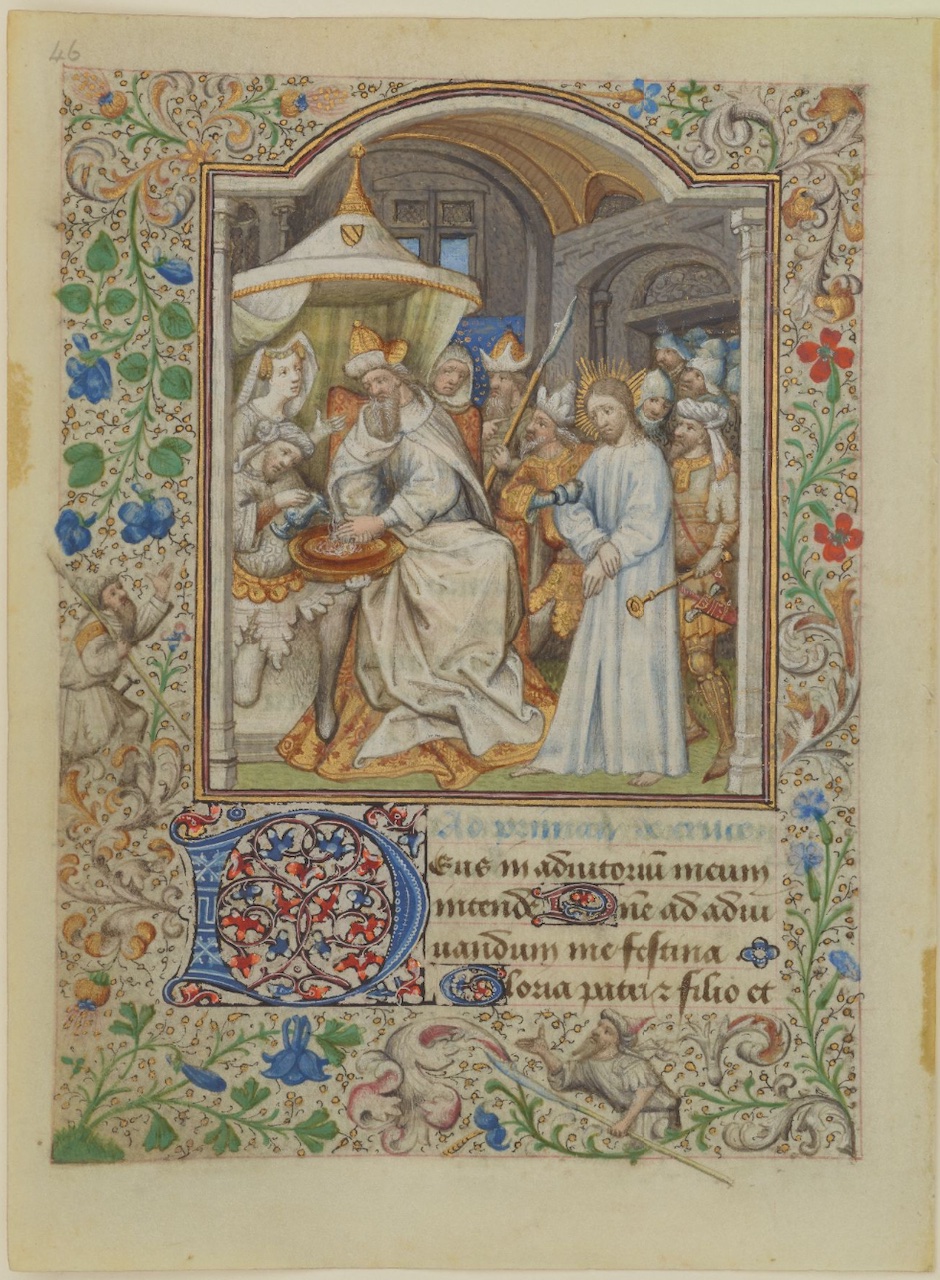 46
Ad primam
Deus in adiutoriū meum
intende Dn̄e ad adiu
uandum me festina
Gloria patri ⁊ filio et